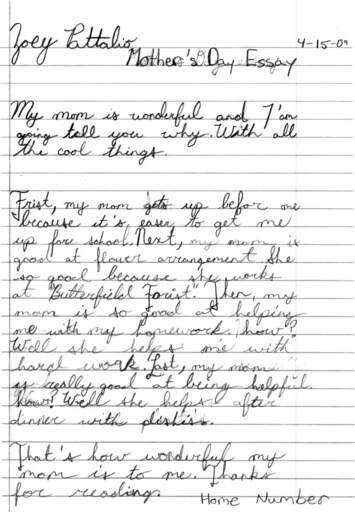 Zoey Pattalio
4-15-09
Mother's Day Essay
My mom is wonderful and I'am
going tell you why. With all
the cool things.
Frist, my mom gets up befor me
because it's easer to get me
up for school. Next, my mom is
good at flower arrangement. She
so good because she works
at "Butterfield Forist". Then, my
mom is so good at helping
me with my homework. how?
Well she helps me with
hard work. Last, my mom
is really good at being helpful.
how? Well she helps after
dinner with dishis.
That's how wonderful my
mom is to me. Thanks
for reading.
Home Number